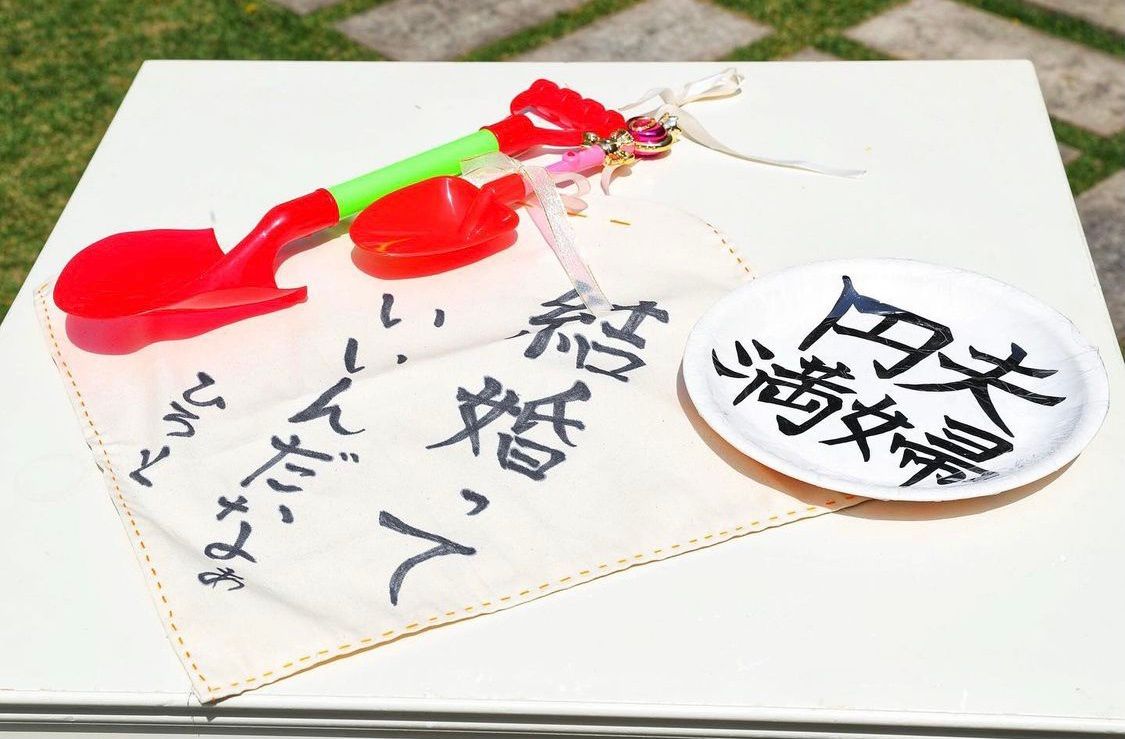 結婚って
いいんだなぁ
ひろと
夫婦
円満